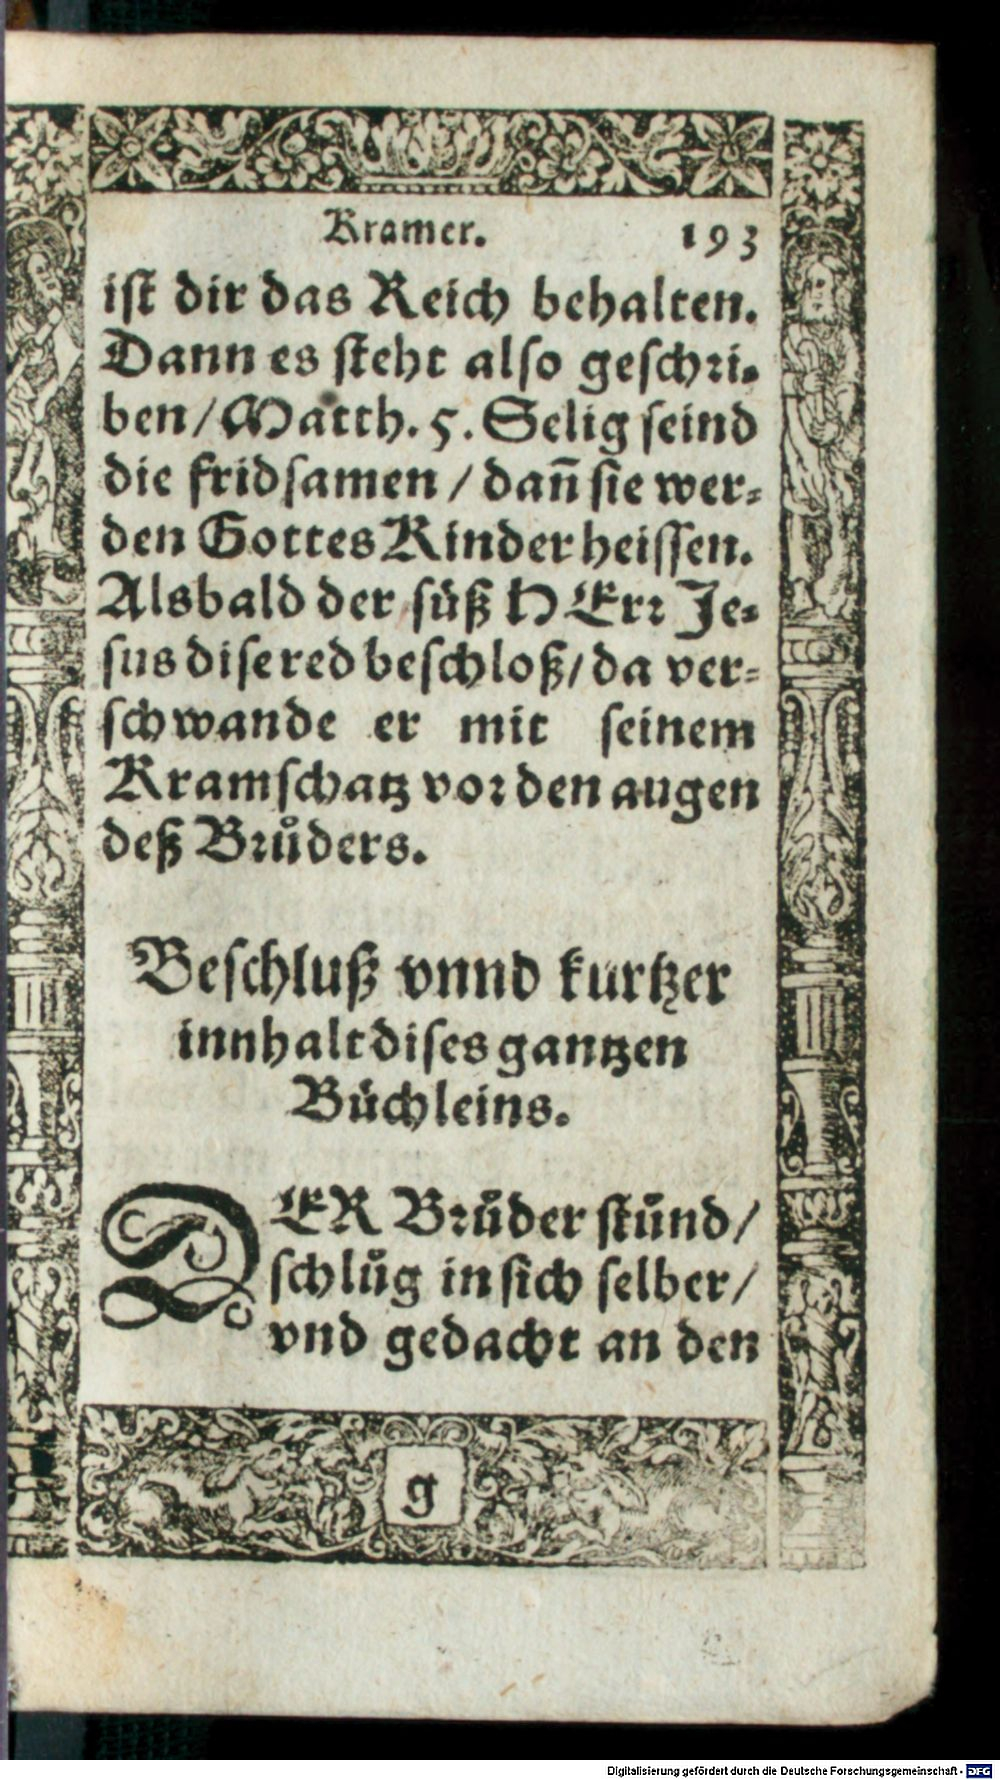 Kramer. 193
ist dir das Reich behalten.
Dann es steht also geschri-
ben/Matth. 5. Selig seind
die fridsamen / dañ sie wer-
den Gottes Kinder heissen.
Alsbald der süß HErr Je-
sus dise red beschloß/ da ver-
schwande er mit seinem
Kramschatz vor den augen
deß Brůders.
Beschluß vnnd kurtzer
innhalt dises gantzen
Büchleins.
DER Brůder stůnd/
schlůg in sich selber/
vnd gedacht an den
g
Digitalisierung gefördert durch die Deutsche Forschungsgemeinschaft - DFG